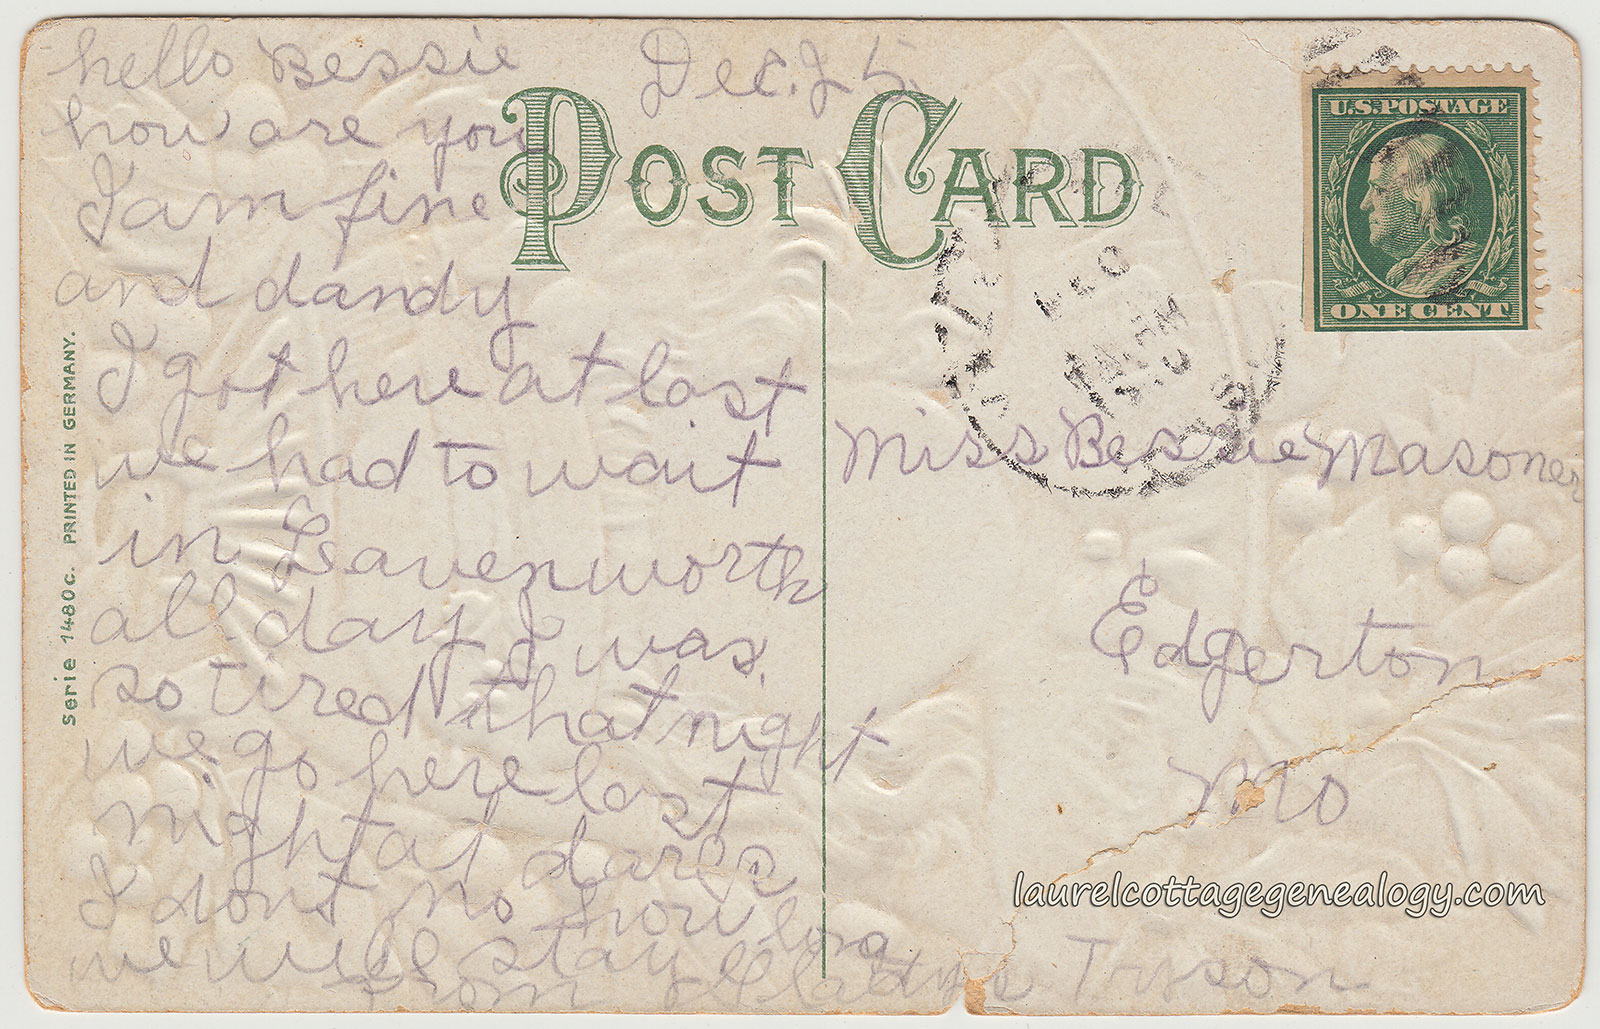 hello Bessie Dec. 25
how are you
I am fine
and dandy
I got here at last
we had to wait
in Leavenworth
all day I was.
so tired that night
we go here last
night at dark
I dont no how long
we will stay
from Gladys Tyson
POST CARD
U.S. POSTAGE
ONE CENT
Miss Bessie Masoner
Edgerton
Mo
Serie 1480c. PRINTED IN GERMANY.
laurelcottagegenealogy.com